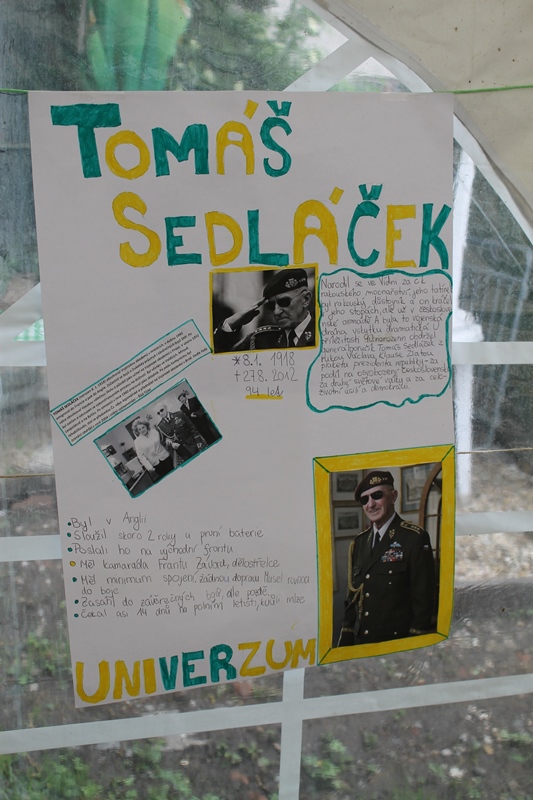 TOMÁŠ
SEDLÁČEK
Narodil se ve Vídni za c.k.
rakouského mocnářství, jeho tatínek
byl rakouský důstojník a on kráčel
v jeho stopách, ale už v českosloven-
ské armádě. A byla to vojenská
dráha vskutku dramatická. U
příležitosti narozenin obdržel
generál Tomáš Sedláček z
rukou Václava Klause Zlatou
plaketu prezidenta republiky za
podíl na osvobození Československa
za druhé světové války a za celo-
životní úsilí o demokracii.
*8.1. 1918
†27.8. 2012
94 let
Byl v Anglii
Sloužil skoro 2 roky u první baterie
Poslali ho na východní frontu
Měl kamaráda Frantu Závorů, dělostřelce
Měl minimum spojení, žádnou dopravu. Musel rovnou
do boje
Zasáhl do závěrečných bojů, ale pozdě
Čekal asi 14 dnů na polním letišti, kvůli mlze
UNIVERZUM